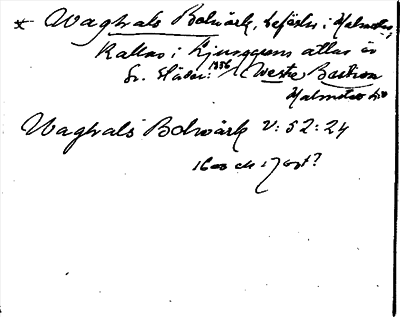 * Waghals Bolwärk, befästn. i Halmstad,
Kallas i Ljunggrens atlas öv
Sv. Städer: 1856 Westre Bastion
Halmstad
Waghals Bolwärk V: 52: 24
1600 och 1700t?